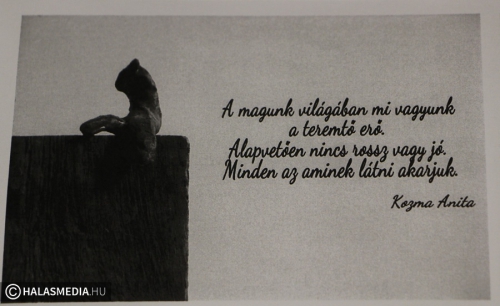 A magunk világában mi vagyunk
a teremtő erő.
Alapvetően nincs rossz vagy jó.
Minden az aminek látni akarjuk.
Kozma Anita
© HALASMEDIA.HU